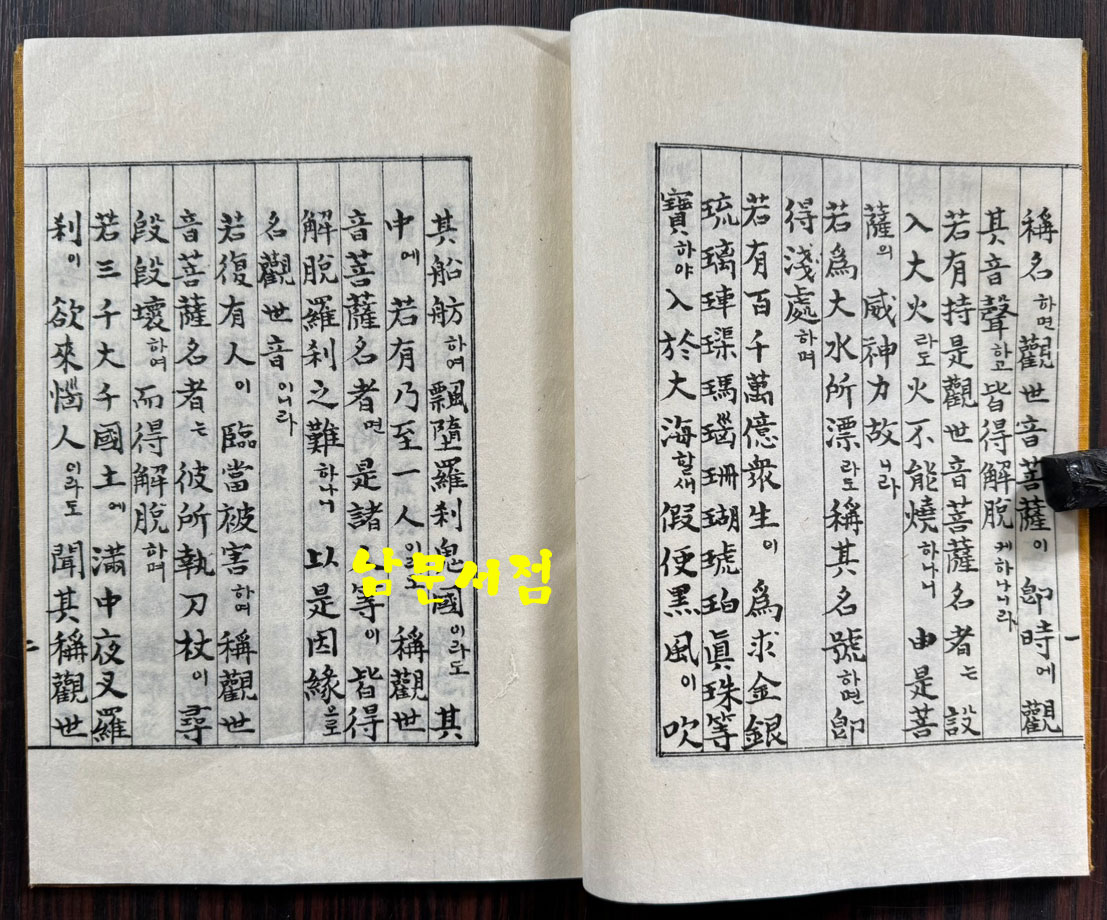 稱名하면觀世音菩薩이 卽時에 觀
其音聲하고 皆得解脫케하나니라
若有持是觀世音菩薩名者는 設
入大火라도 火不能燒하나니 由是菩
薩의 威神力故니라
若爲大水所漂라도 稱其名號하면 卽
得淺處하며
若有百千萬億衆生이 爲求金銀
琉璃硨磲瑪瑙珊瑚琥珀眞珠等
寶하야 入於大海할새 假使黑風이 吹
一
其船舫하여 飄墮羅刹鬼國이라도 其
中에 若有乃至一人이라도 稱觀世
音菩薩名者면 是諸人等이 皆得
解脫羅刹之難하나니 以是因緣으로
名觀世音이니라
若復有人이 臨當被害하여 稱觀世
音菩薩名者는 彼所執刀杖이 尋
段段壞하여 而得解脫하며
若三千大千國土에 滿中夜叉羅
刹이 欲來惱人이라도 聞其稱觀世
二
남문서점